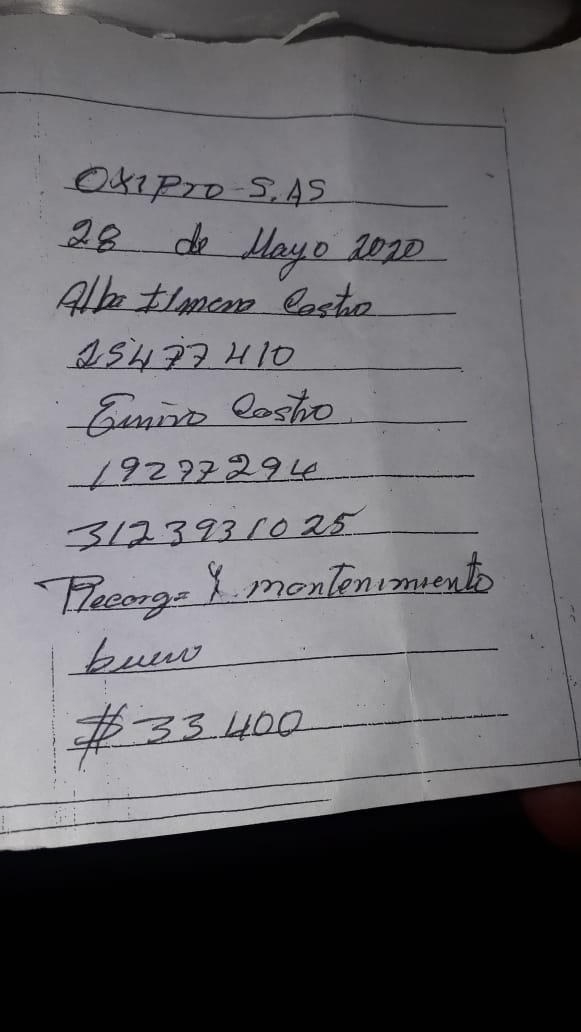 OXIPro-S.AS
28 de Mayo 2020
Alba Ximena Castro
25477410
Emiro Castro
19277294
3123931025
Recarga Y mantenimiento
bueno
$ 33 400